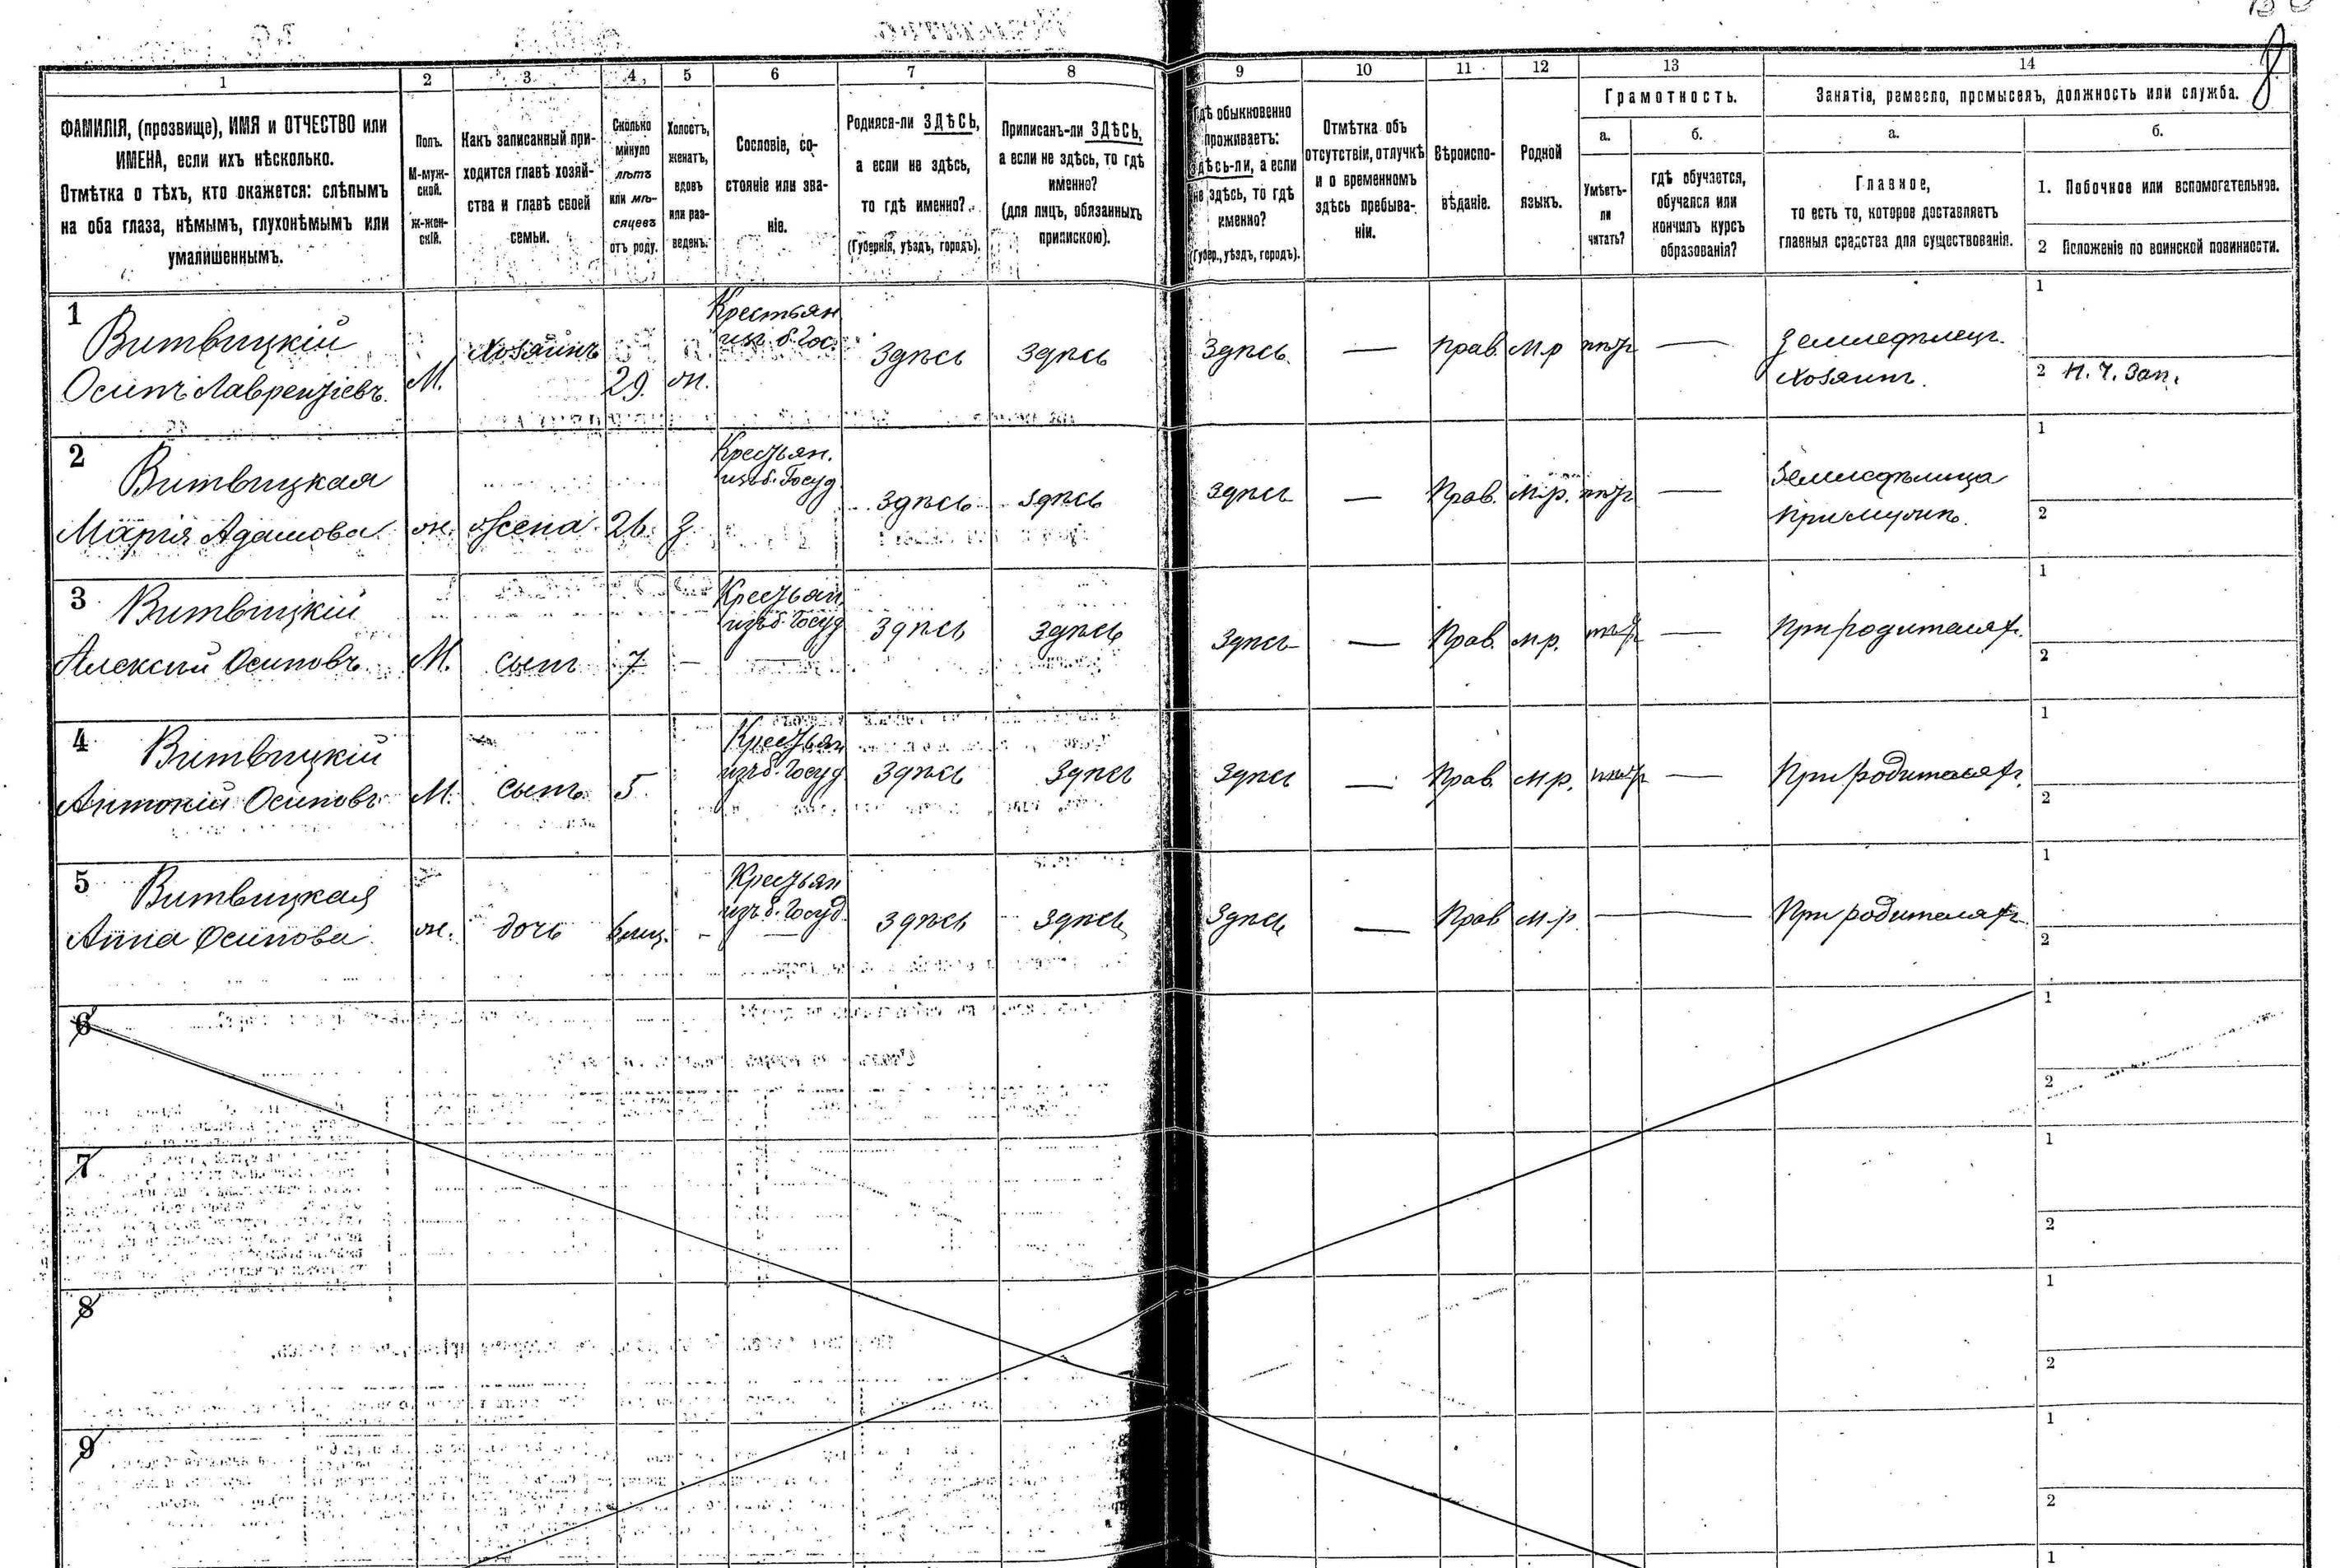 1 2 3 4 5 6 7 8 9 10 11 12 13 14
ФАМИЛІЯ, (прозвище), ИМЯ и ОТЧЕСТВО или
ИМЕНА, если ихъ нѣсколько.
Отмѣтка о тѣхъ, кто окажется: слѣпымъ
на оба глаза, нѣмымъ, глухонѣмымъ или
умалишеннымъ.
Полъ.
М-муж-
ской.
Ж-жен-
скій.
Какъ записанный при-
ходится главѣ хозяй-
ства и главѣ своей
семьи.
Сколько
минуло
лѣтъ
или мѣ-
сяцевъ
отъ роду.
Холостъ,
женатъ,
вдовъ
или раз-
веденъ.
Сословіе, со-
стояніе или зва-
ніе.
Родился-ли ЗДѢСЬ,
а если не здѣсь,
то гдѣ именно?
(Губернія, уѣздъ, городъ).
Приписанъ-ли ЗДѢСЬ,
а если не здѣсь, то гдѣ
именно?
(для лицъ, обязанныхъ
припискою).
Гдѣ обыкновенно
проживаетъ:
Здѣсь-ли, а если
не здѣсь, то гдѣ
именно?
(Губер., уѣздъ, городъ).
Отмѣтка объ
отсутствіи, отлучкѣ
и о временномъ
здѣсь пребыва-
ніи.
Вѣроиспо-
вѣданіе.
Родной
языкъ.
Грамотность.
а.
Умѣетъ-
ли
читать?
б.
гдѣ обучается,
обучался или
кончилъ курсъ
образованія?
Занятіе, ремесло, промыселъ, должность или служба.
а.
Главное,
то есть то, которое доставляетъ
главныя средства для существованія.
б.
1. Побочное или вспомогательное.
2 Положеніе по воинской повинности.
8
1
Витвицкій
Осипъ Лаврентіевъ
М.
Хозяинъ
29.
ж.
Крестьян
изъ б. Гос.
Здѣсь
Здѣсь
Здѣсь.
—
Прав.
м.р
нѣтъ
—
Земледѣлецъ.
Хозяинъ.
1
2 Н. Ч. Зап.
2
Витвицкая
Марія Адамова
ж.
Жена
26.
З.
Крестьян.
изъ б. Госуд
Здѣсь
Здѣсь
Здѣсь
—
Прав.
м.р.
нѣтъ
—
Земледѣлица
При мужѣ.
1
2
3
Витвицкій
Алексѣй Осиповъ
М.
Сынъ
7
—
Крестьян.
изъ б. Госуд
Здѣсь
Здѣсь
Здѣсь
—
Прав.
м.р.
нѣтъ
—
При родителяхъ.
1
2
4
Витвицкій
Антоній Осиповъ
М.
Сынъ
5.
Крестьян
изъ б. Госуд
Здѣсь
Здѣсь
Здѣсь
—
Прав.
м.р.
нѣтъ
—
При родителяхъ.
1
2
5
Витвицкая
Анна Осипова
ж.
дочь
6 мѣц.
-
Крестьян
изъ б. Госуд.
Здѣсь
Здѣсь
Здѣсь
—
Прав
м.р.
—
При родителяхъ
1
2
6
1
2
7
1
2
8
1
2
9
1
2
1